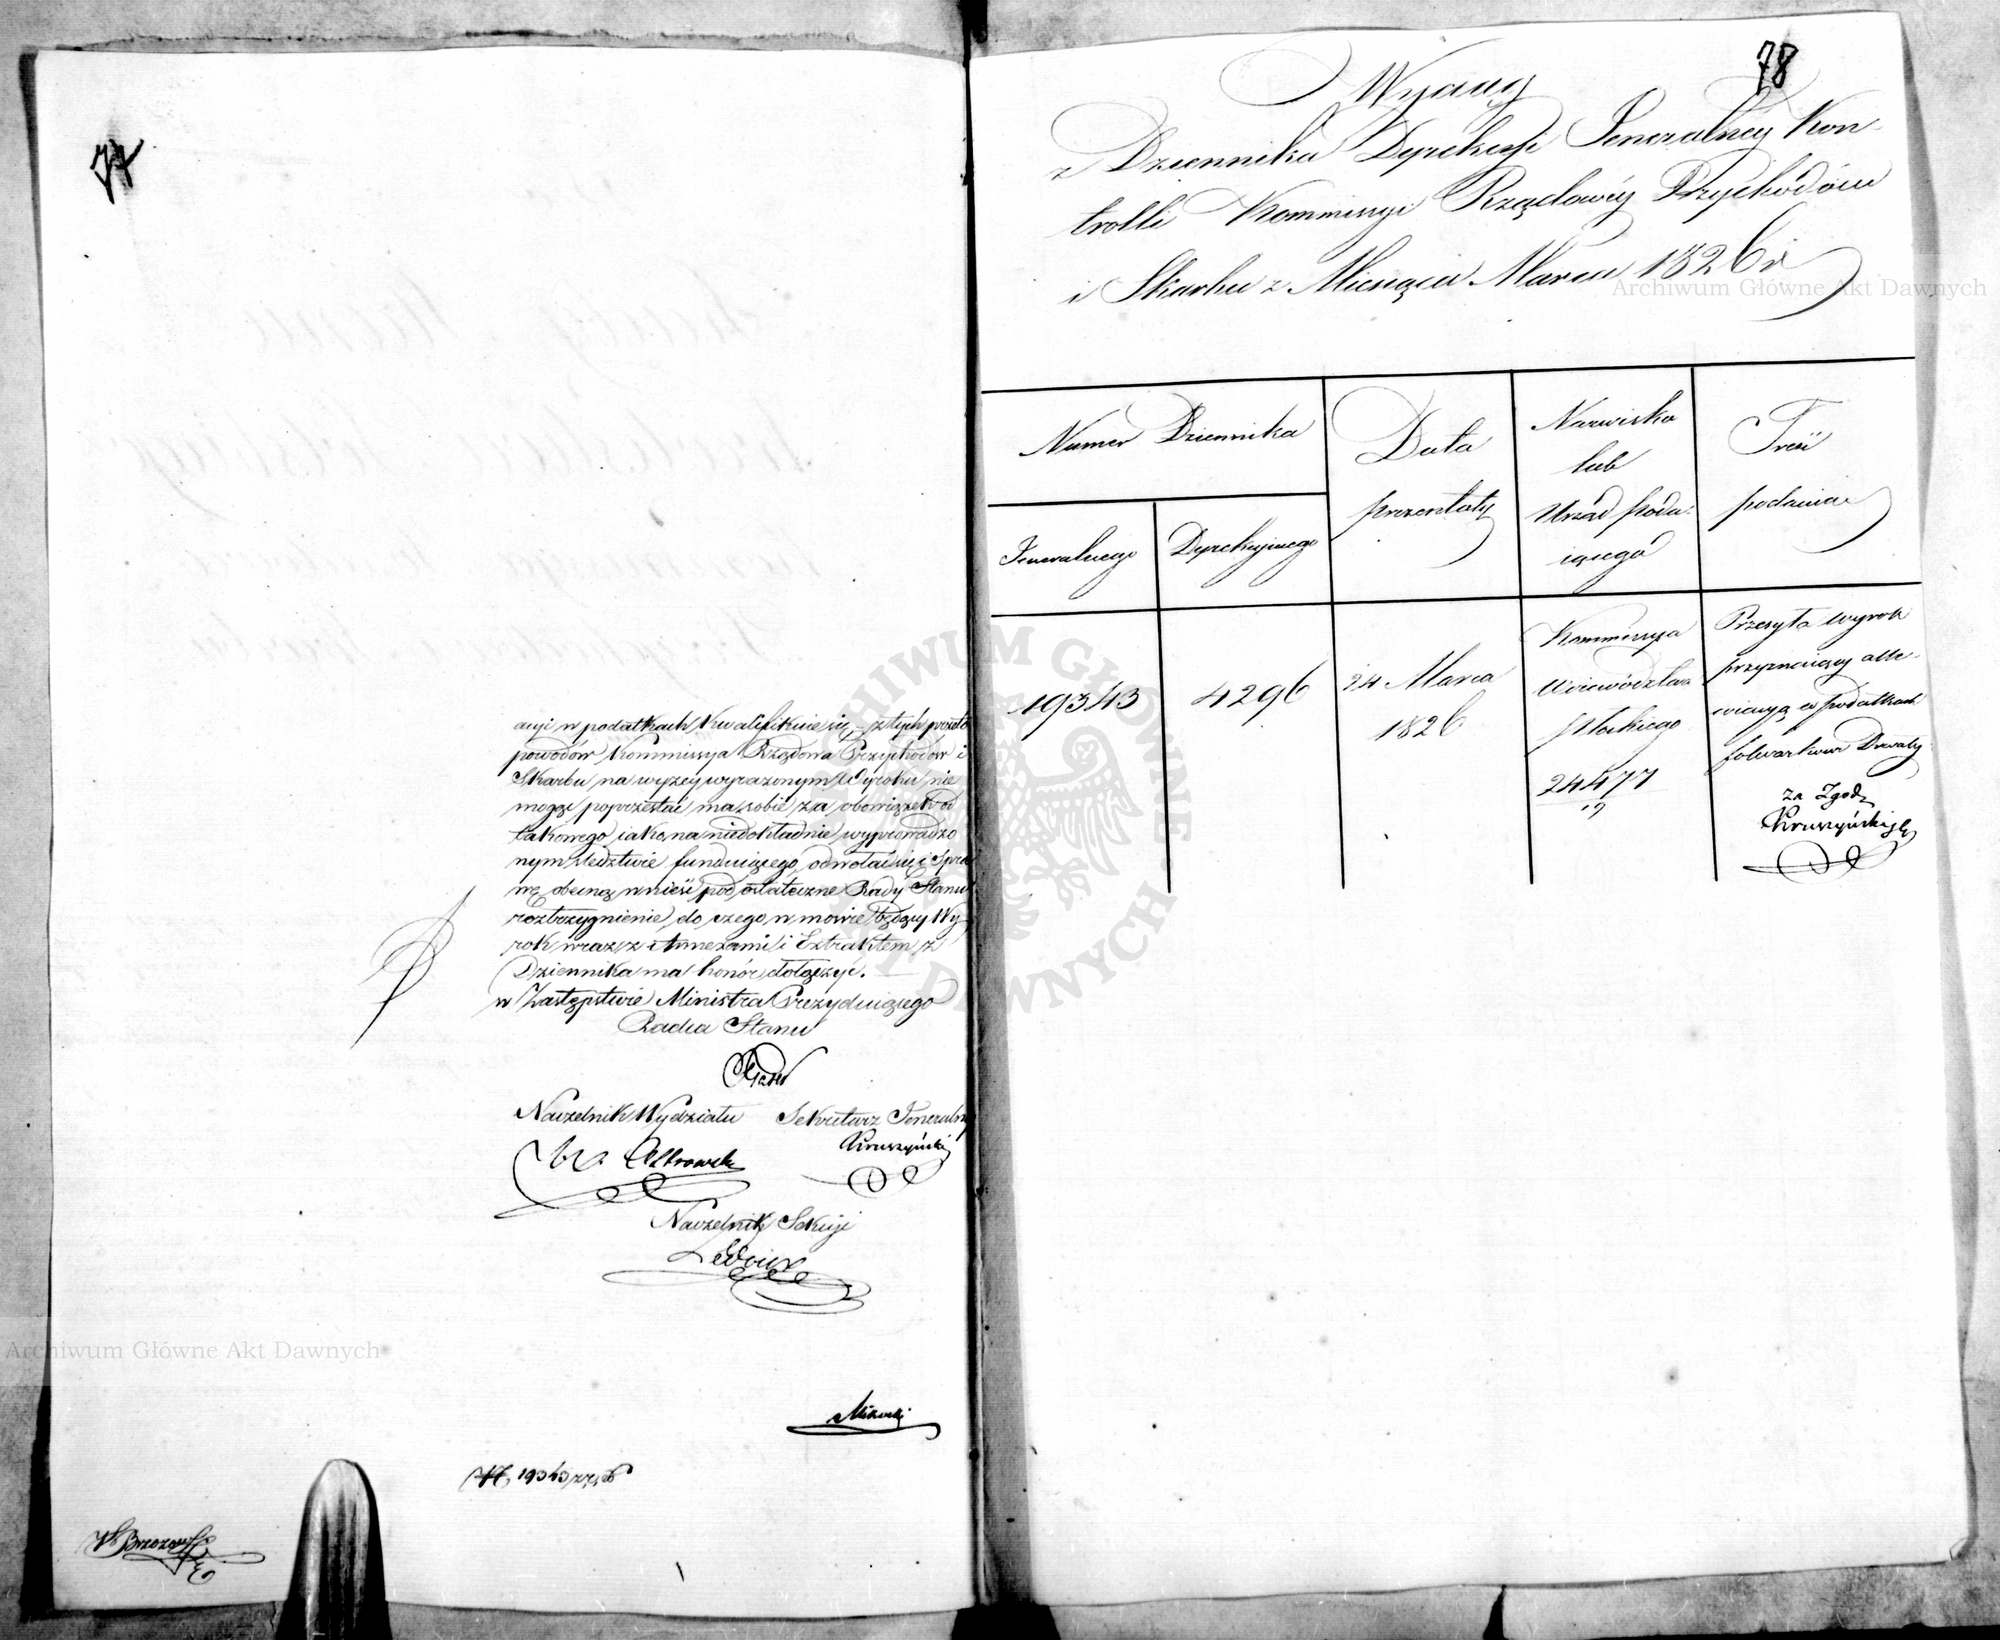 77
acyi w podatkach kwalifikuie się, – z tych przeto
powodów Kommissya Rządowa Przychodów i
Skarbu na wyżey wyrażonym Wyroku nie
mogąc poprzestać ma sobie za obowiązek od
takowego iako na niedokładnie wyprowadzo
nym śledztwie funduiącego, odwołać się i Spra
wę obecną wnieść pod ostateczne Rady Stanu
rozstrzygnienie, do czego w mowie będący Wy
rok wraz z Annexami i Extraktem z
Dziennika ma honór dołączyć.
w Zastępstwie Ministra Prezyduiącego
Radca Stanu
Naczelnik Wydziału Sekretarz Jeneralny
Kruszyński
Naczelnik Sekcyi
19343
Brzozowski
78
Wyciąg
z Dziennika Dyrekcyi Jeneralney Kon-
trolli Kommissyi Rządowéy Przychodów
i Skarbu z Miesiąca Marca 1826 r
Numer Dziennika
Jeneralnego
Dyrekcyinego
Data
prezentaty
Nazwisko
lub
Urząd poda-
iącego
Treść
podania
19343
4296
24 Marca
1826
Kommissya
Woiewództwa
Płockiego
24477
Przesyła wyrok
przyznaiący alle-
wiacyą w podatkach
folwarkowi Drwały
za Zgod
Kruszyński
Archiwum Główne Akt Dawnych
Archiwum Główne Akt Dawnych
ARCHIWUM GŁÓWNE AKT DAWNYCH